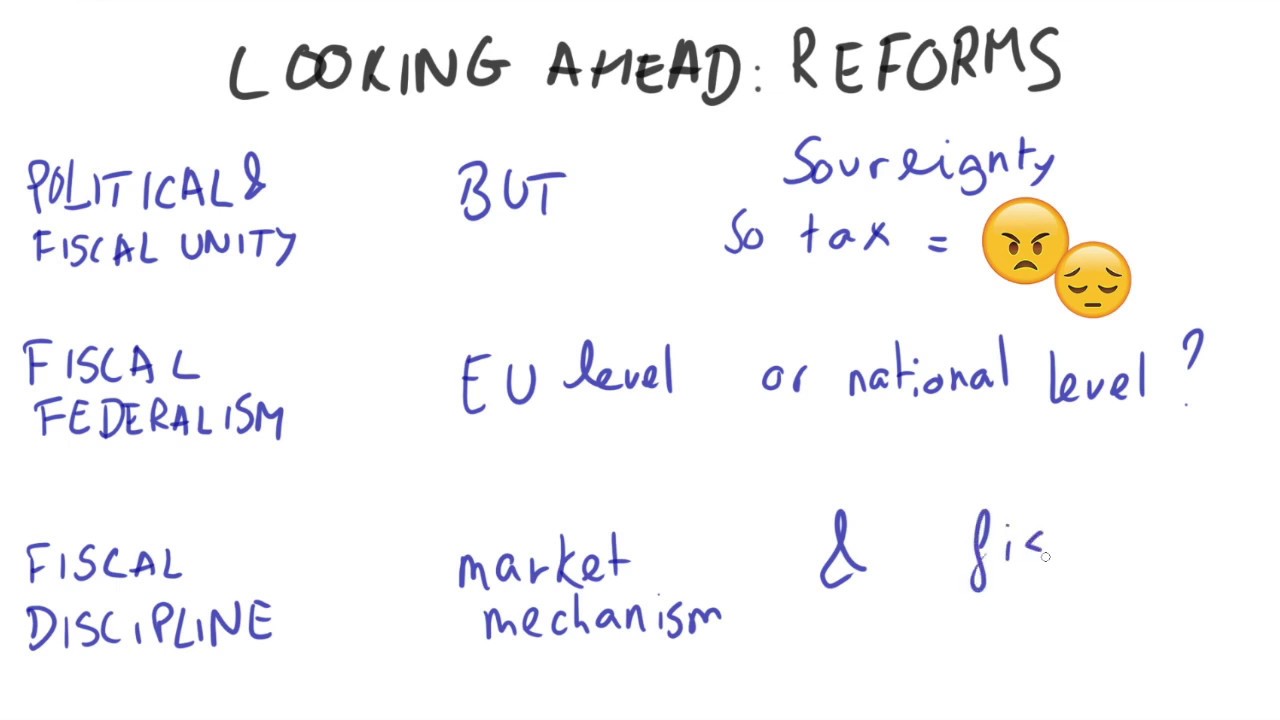 LOOKING AHEAD: REFORMS
POLITICAL &
FISCAL UNITY
BUT
Sovereignty
So tax =
FISCAL
FEDERALISM
EU level or national level?
FISCAL
DISCIPLINE
market
mechanism
& fis